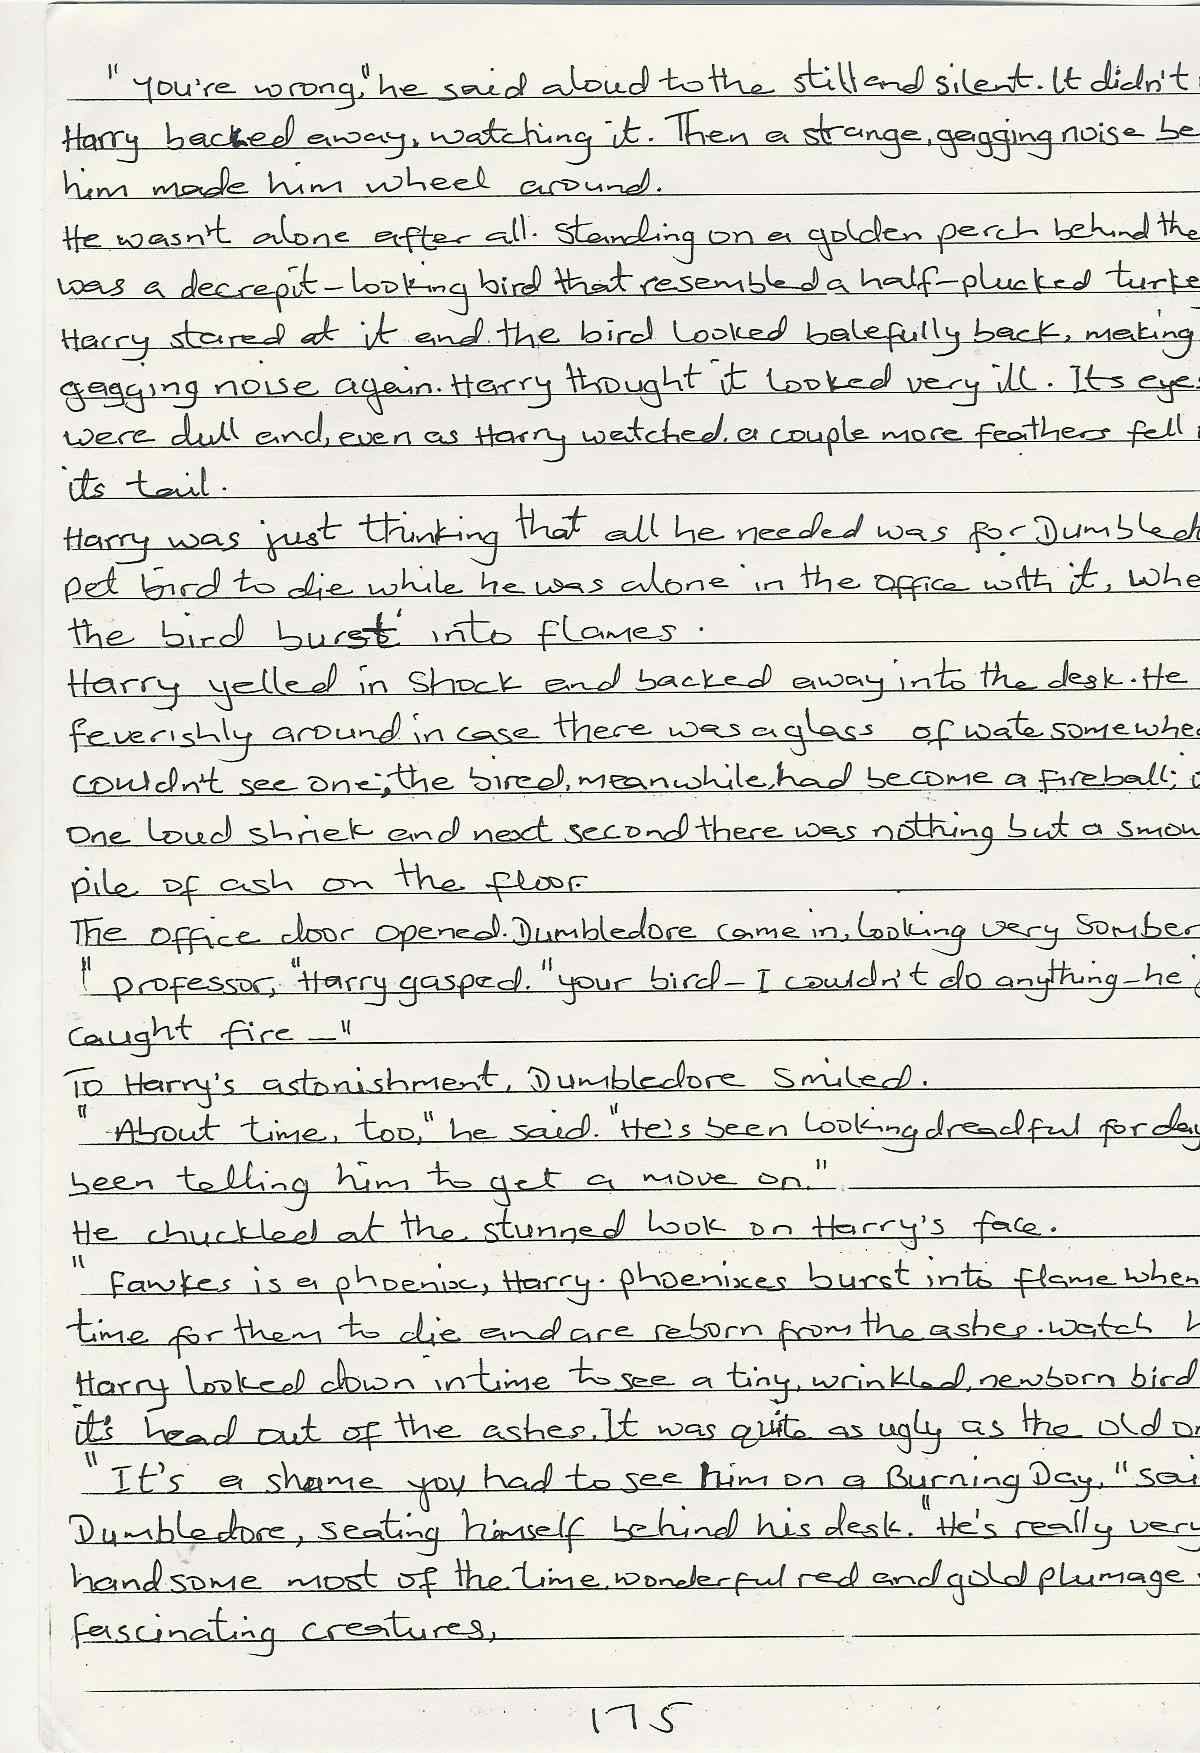 "You're wrong," he said aloud to the still and silent. It didn't
Harry backed away, watching it. Then a strange, gagging noise be
him made him wheel around.
He wasn't alone after all. Standing on a golden perch behind the
was a decrepit-looking bird that resembled a half-plucked turke
Harry stared at it and the bird looked balefully back, making
gagging noise again. Harry thought it looked very ill. Its eyes
were dull and, even as Harry watched, a couple more feathers fell
its tail.
Harry was just thinking that all he needed was for Dumbled
pet bird to die while he was alone in the office with it, whe
the bird burst into flames.
Harry yelled in shock and backed away into the desk. He
feverishly around in case there was a glass of wate somewhe
couldn't see one; the bired, meanwhile, had become a fireball; i
one loud shriek and next second there was nothing but a smou
pile of ash on the floor.
The office door opened. Dumbledore came in, looking very somber
"professor," Harry gasped. "your bird - I couldn't do anything - he
caught fire -"
To Harry's astonishment, Dumbledore smiled.
"About time, too," he said. "He's been looking dreadful for day
been telling him to get a move on."
He chuckled at the stunned look on Harry's face.
"Fawkes is a phoenix, Harry. phoenixes burst into flame when
time for them to die and are reborn from the ashes. watch h
Harry looked down in time to see a tiny, wrinkled, newborn bird
it's head out of the ashes. It was quite as ugly as the old on
"It's a shame you had to see him on a Burning Day," sai
Dumbledore, seating himself behind his desk. "He's really very
handsome most of the time, wonderful red and gold plumage.
fascinating creatures,
175